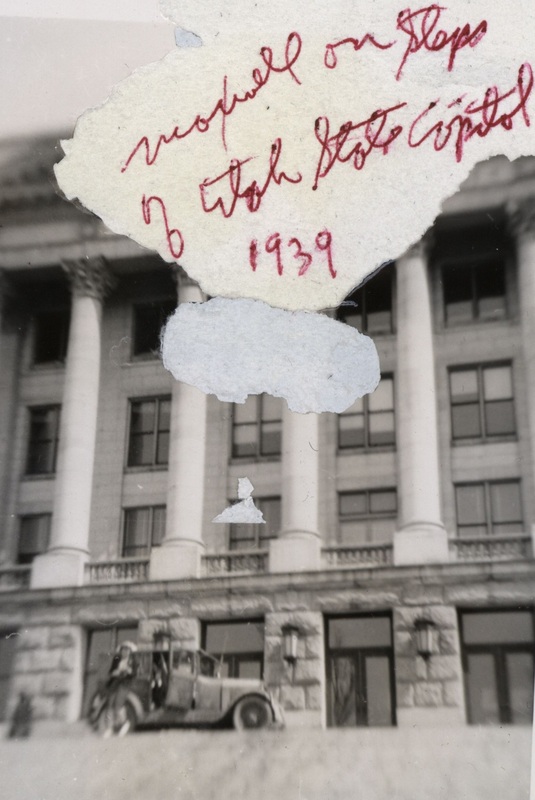 Maxwell on Steps
of Utah State Capitol
1939